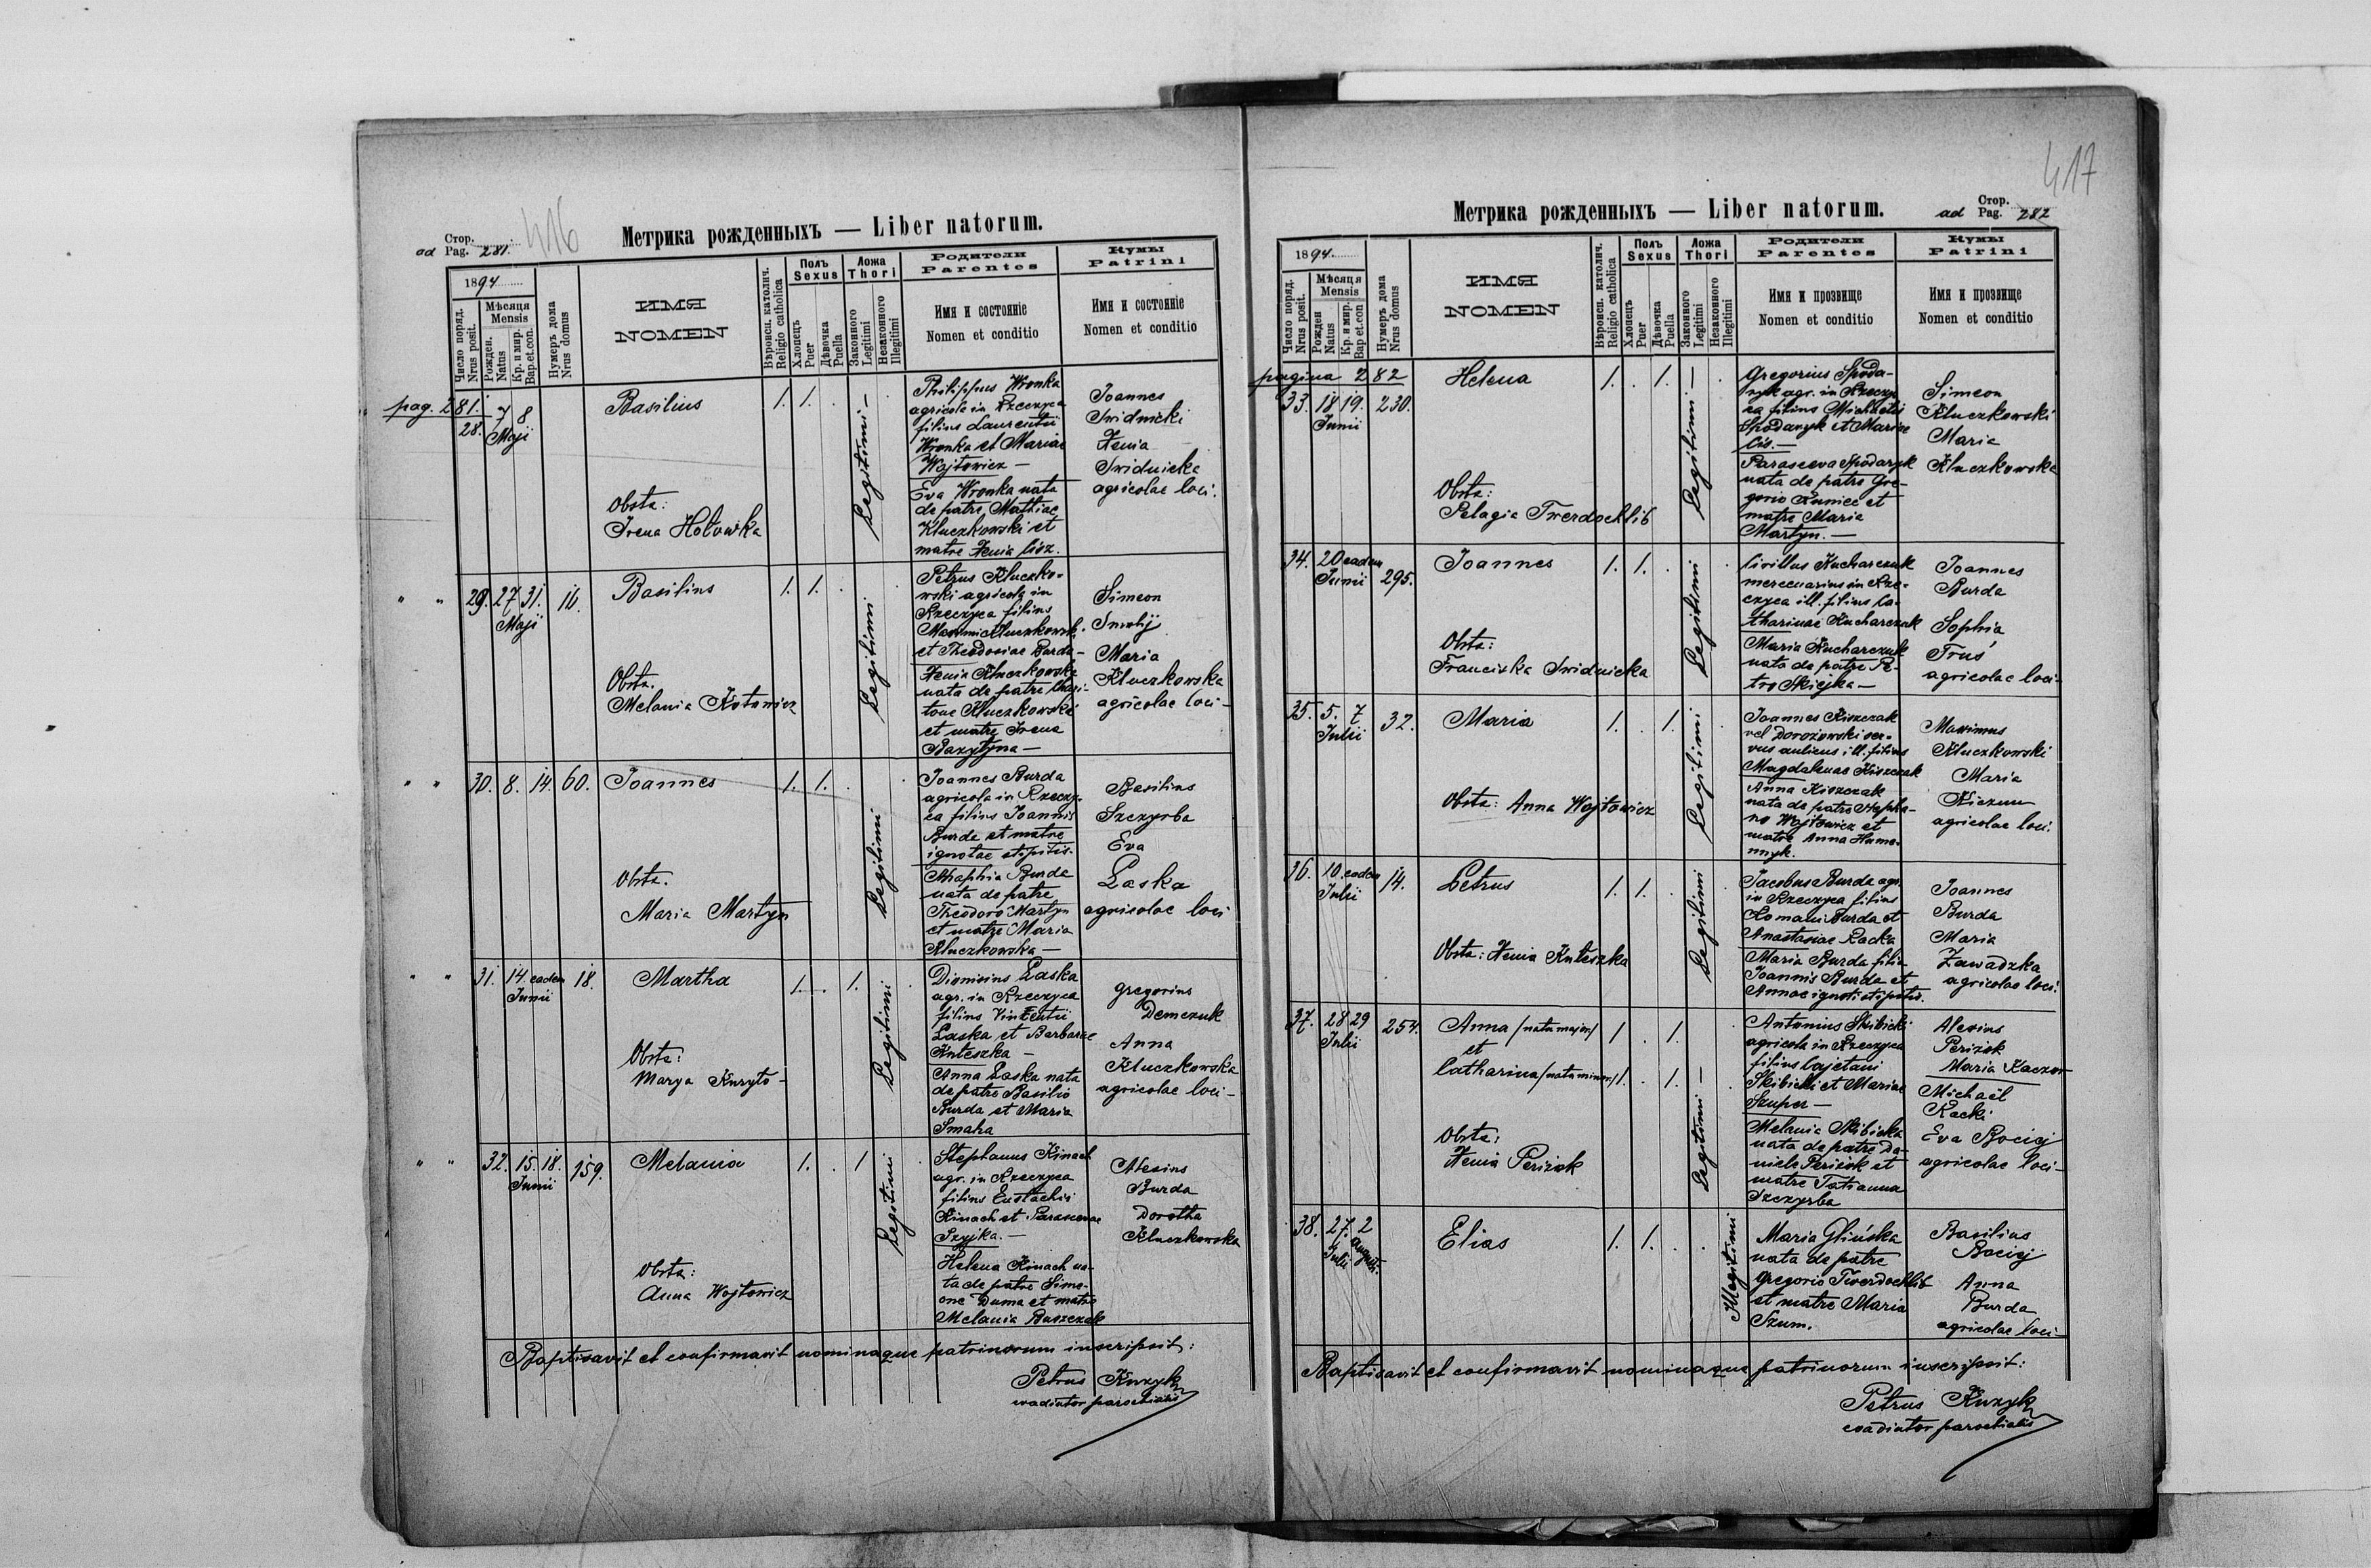 416
ad Стор. Pag. 281.
Метрика рожденныхъ — Liber natorum.
1894
Число поряд. Nrus posit.
Мѣсяця Mensis
Рожден. Natus
Кр. и мир. Bap.et.con.
Нумеръ дома Nrus domus
ИМЯ NOMEN
Вѣроисп. католич. Religio catholica
Полъ Sexus
Хлопецъ Puer
Дѣвочка Puella
Ложа Thori
Законного Legitimi
Незаконного Illegitimi
Родители Parentes
Имя и состоянiе
Nomen et conditio
Кумы Patrini
Имя и состоянiе
Nomen et conditio
pag. 281.
28. 7 8 Maji
Basilius
1. 1. .
Legitimi —
Obsta:
Irena Hołowka
Philippus Wronka
agricola in Rzeczyca
filius Laurentii
Wronka et Mariae
Wojtowicz —
Eva Wronka nata
de patre Mathiae
Kluczkowski et
matre Xenia
Joannes
Swidnicki
Xenia
Swidnicka
agricolae loci.
" " 29. 27 31. Maji 16.
Basilius
1. 1. .
Legitimi
Obsta.
Melania Kotowicz
Petrus Kluczko-
wski agricola in
Rzeczyca filius
Maximi Kluczkowsk.
et Theodosiae Burda —
Xenia Kluczkowska
nata de patre Chari-
tone Kluczkowski
et matre Irena
Bazytyna —
Simeon
Smolij
Maria
Kluczkowska
agricolae loci —
" " 30. 8. 14. 60.
Joannes
1. 1. .
Legitimi
Obsta.
Maria Martyn
Joannes Burda
agricola in Rzeczy-
ca filius Joannis
Burda et matre
ignotae stipitis.
Agaphia Burda
nata de patre
Theodoro Martyn
et matre Maria
Kluczkowska —
Basilius
Szczyrba
Eva
Łaska
agricolae loci
" " 31. 14. eadem Junii 18.
Martha
1. . 1.
Legitimi
Obsta:
Marya Kuryto —
Dionisius Łaska
agr. in Rzeczyca
filius Vincentii
Łaska et Barbarae
Kuteszka —
Anna Łaska nata
de patre Basilio
Burda et Maria
Smaha
Gregorius
Demczuk
Anna
Kluczkowska
agricolae loci —
" " 32. 15. 18. Junii 159.
Melania
1. . 1
Legitimi
Obsta:
Anna Wojtowicz
Stephanus Kinach
agr. in Rzeczyca
filius Eustachii
Kinach et Parascevae
Szyjka. —
Helena Kinach na-
ta de patre Sime-
one Duma et matre
Melania Buszczak
Alexius
Burda
Dorotha
Kluczkowska
Baptisavit et confirmavit nominaque patrinorum inscripsit:
Petrus Kuzyk
coadiutor parochialis
417
Метрика рожденныхъ — Liber natorum.
ad Стор. Pag. 282
1894
Число поряд. Nrus posit.
Мѣсяця Mensis
Рожден Natus
Кр. и мир. Bap et.con
Нумеръ дома Nrus domus
ИМЯ NOMEN
Вѣроисп. католич. Religio catholica
Полъ Sexus
Хлопецъ Puer
Дѣвочка Puella
Ложа Thori
Законного Legitimi
Незаконного Illegitimi
Родители Parentes
Имя и прозвище
Nomen et conditio
Кумы Patrini
Имя и прозвище
Nomen et conditio
pagina 282
33. 18 19. Junii 230.
Helena
1. . 1. —
Legitimi
Obsta:
Pelagia Twerdochlib
Gregorius Spoda-
ryk agr. in Rzeczy-
ca filius Michaelis
Spodaryk et Mariae
Cis. —
Parasceva Spodaryk
nata de patre Gre-
gorio Kuniec et
matre Maria
Martyn. —
Simeon
Kluczkowski
Maria
Kluczkowska
34. 20 eadem Junii 295.
Joannes
1. 1. .
Legitimi
Obsta:
Franciska Swidnicka
Cirillus Kucharczuk
mercenarius in Rze-
czyca ill. filius Ca-
tharinae Kucharczuk
Maria Kucharczuk
nata de patre Pe-
tro Skiejka —
Joannes
Burda
Sophia
Truś
agricolae loci —
35. 5. 7 Julii 32.
Maria
1. . 1.
Legitimi
Obsta: Anna Wojtowicz
Joannes Kiszczak
vel Dorożowski ser-
vus aulicus ill. filius
Magdalenae Kiszczak
Anna Kiszczak
nata de patre Stepha-
no Wojtowicz et
matre Anna
Maximus
Kluczkowski
Maria
agricolae loci.
36. 10. eadem Julii 14.
Petrus
1. 1. .
Legitimi
Obsta: Xenia Kuteszka
Jacobus Burda agr.
in Rzeczyca filius
Romani Burda et
Anastasiae Racka
Maria Burda filia
Joannis Burda et
Annae ignoti stipitis.
Joannes
Burda
Maria
Zawadzka
agricolae loci.
37. 28 29 Julii 254.
Anna /natu major/
et
Catharina /natu minor/
1 . 1.
1. . 1. —
Legitimi —
Obsta:
Xenia Perizok
Antonius Skibicki
agricola in Rzeczyca
filius Cajetani
Skibicki et Mariae
Szuper —
Melania Skibicka
nata de patre Da-
niele Perizok et
matre Tatianna
Szczyrba
Alexius
Perizok
Maria Kaczor
Michaël
Racki
Eva Bociej
agricolae loci —
38. 27. Julii 2 Augusti.
Elias
1. 1. . .
Illegitimi
Maria Glińska
nata de patre
Gregorio Twerdochlib
et matre Maria
Szum.
Basilius
Bociej
Anna
Burda
agricolae loci —
Baptisavit et confirmavit nominaque patrinorum inscripsit:
Petrus Kuzyk
coadiutor parochialis